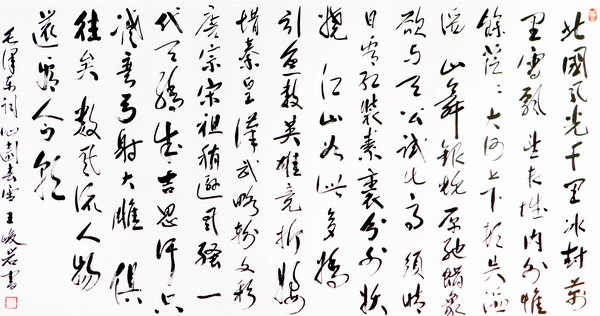 北國風光千里冰封萬
里雪飄望長城内外惟
餘莽莽大河上下頓失滔
滔山舞銀蛇原馳蠟象
欲与天公試比高須晴
日看紅裝素裹分外妖
嬈江山如此多嬌
引無數英雄競折腰
惜秦皇漢武略輸文彩
唐宗宋祖稍遜風騷一
代天驕成吉思汗只
識彎弓射大雕俱
往矣數風流人物
還看今朝
毛澤東詞沁園春雪王峻岩書